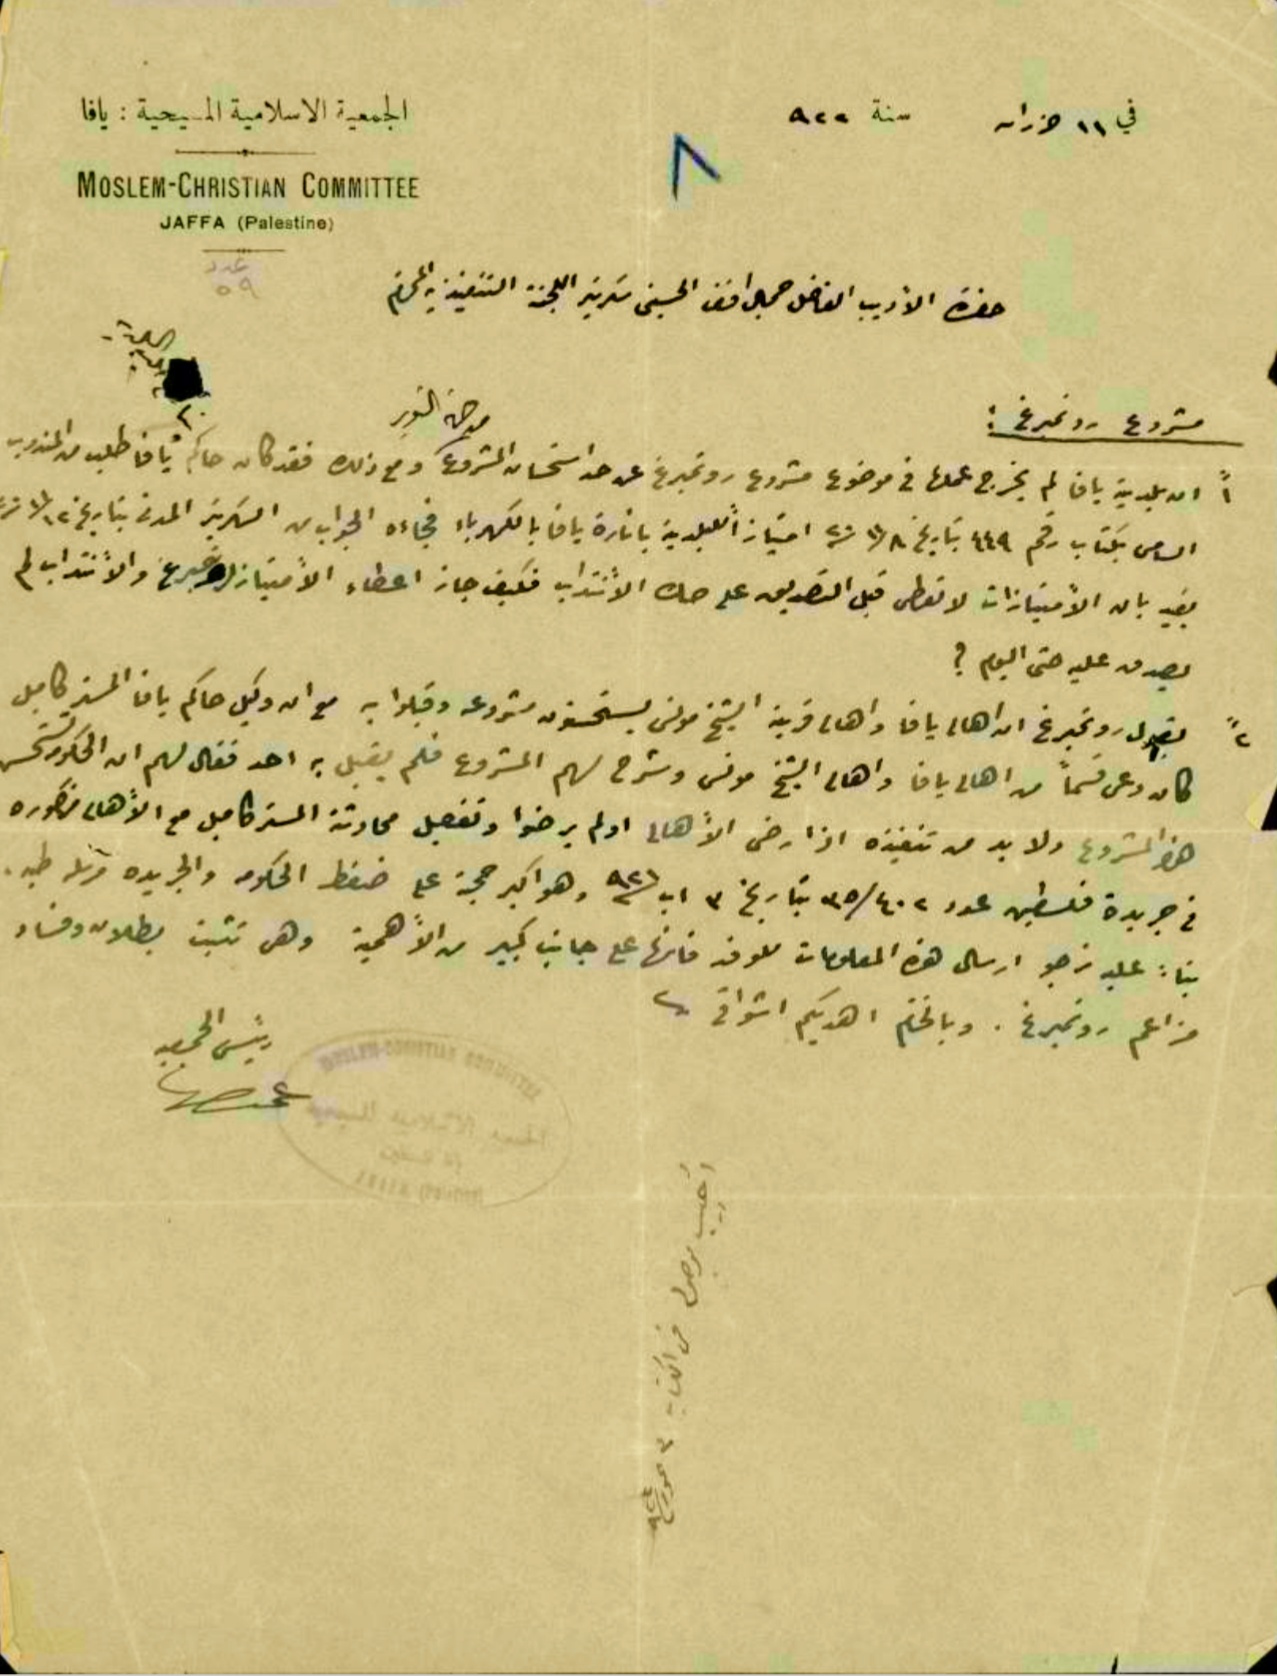 الجمعية الاسلامية المسيحية : يافا
MOSLEM-CHRISTIAN COMMITTEE
JAFFA (Palestine)
عدد
٥٩
في ١١ حزران سنة ٩٢٢
٨
حضرة الأديب الفاضل جمال افندي الحسيني سكرتير اللجنة التنفيذية المحترم
مشروع روتمبرغ :
من جهة التنوير
١ً ان بلدية يافا لم يخرج عملها في موضوع مشروع روتمبرغ عن حد استحسان المشروع ومع ذلك فقد كان حاكم يافا طلب من المندوب
السامي بكتاب رقم ٤٤٩ بتاريخ امتيازاً للبلدية بانارة يافا بالكهرباء فجاءه الجواب من السكرتير المدني بتاريخ
يفيد بان الأمتيازات لا تعطى قبل التصديق على صك الأنتداب فكيف جاز اعطاء الأمتياز لروتمبرغ والأنتداب لم
يصدق عليه حتى اليوم ؟
٢ً يقول روتمبرغ ان اهالي يافا واهالي قرية الشيخ مونس يستحسنون مشروعه وقبلوا به مع ان وكيل حاكم يافا المستر كامبل
كان دعى قسماً من اهالي يافا واهالي الشيخ مونس وشرح لهم المشروع فلم يقبل به احد فقال لهم ان الحكومة تستحسن
هذا المشروع ولا بد من تنفيذه اذا رضي الأهالي او لم يرضوا وتفصيل محادثة المستر كامبل مع الأهالي مذكوره
في جريدة فلسطين عدد ٤٠٢/٣٥ بتاريخ ٣ اب ٩٢١ وهو اكبر حجة على ضغط الحكومه والجريده مرسله طيه .
بناءً عليه نرجو ارسال هذه المعلومات للوفد فانها على جانب كبير من الأهمية وهي تثبت بطلان وفساد
مزاعم روتمبرغ . وبالختام اهديكم اشواقي
رئيس الجمعيه
MOSLEM-CHRISTIAN COMMITTEE
JAFFA